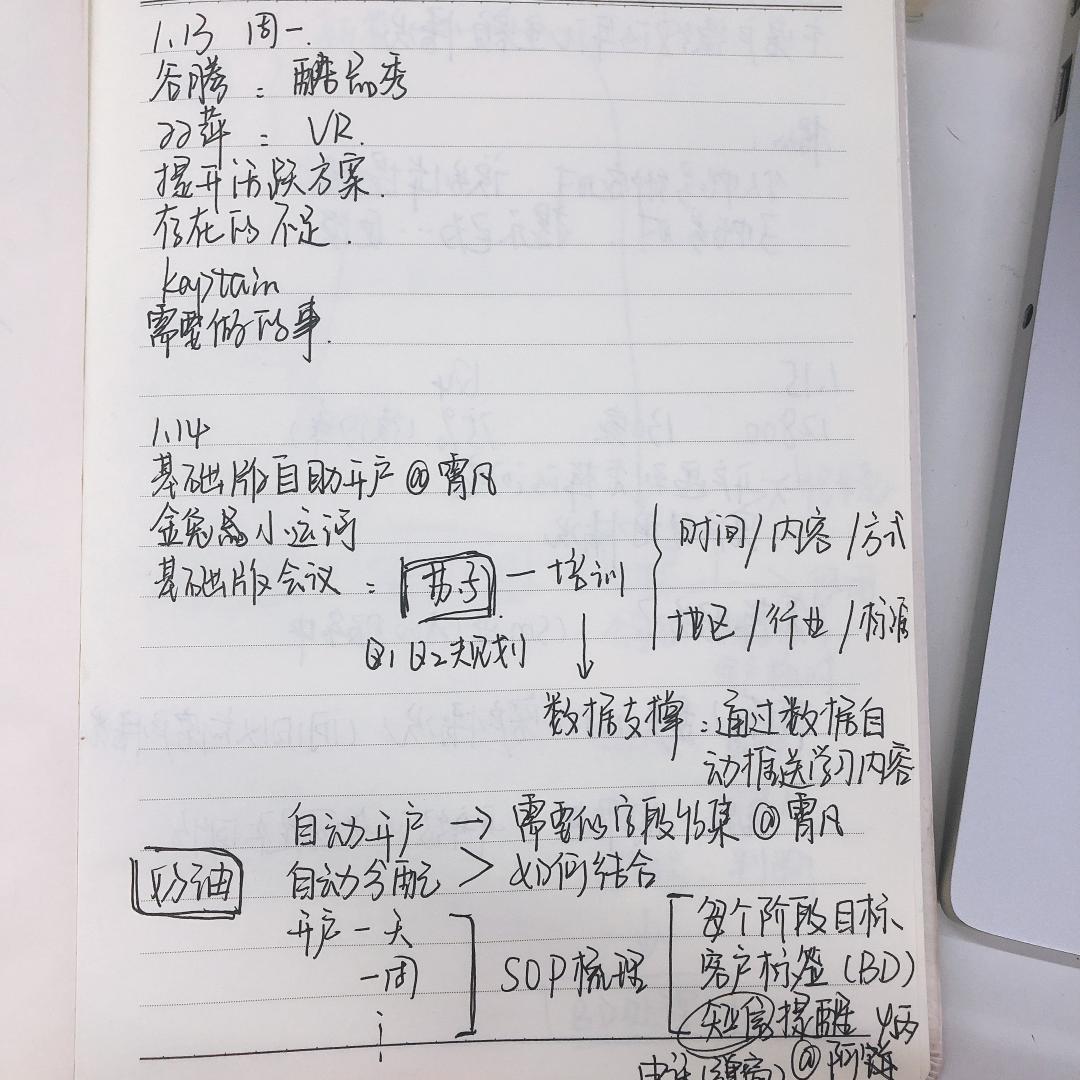 1.13 周一.
谷腾: 酷品秀
双萍: VR.
提升活跃方案.
存在的不足.
kaptain
需要做的事.
1.14
基础版自助开户@霄凡
金兔晶小运河
基础版会议: 苏 — 培训
时间/内容/方式
地区/行业/标准
Q1 Q2规划
数据支撑: 通过数据自
动推送学习内容
自动开户 → 需要做字段收集@霄凡
自动分配 > 如何结合
开户一天
一周
SOP梳理
每个阶段目标
客户标签(BD)
短信提醒
@阿